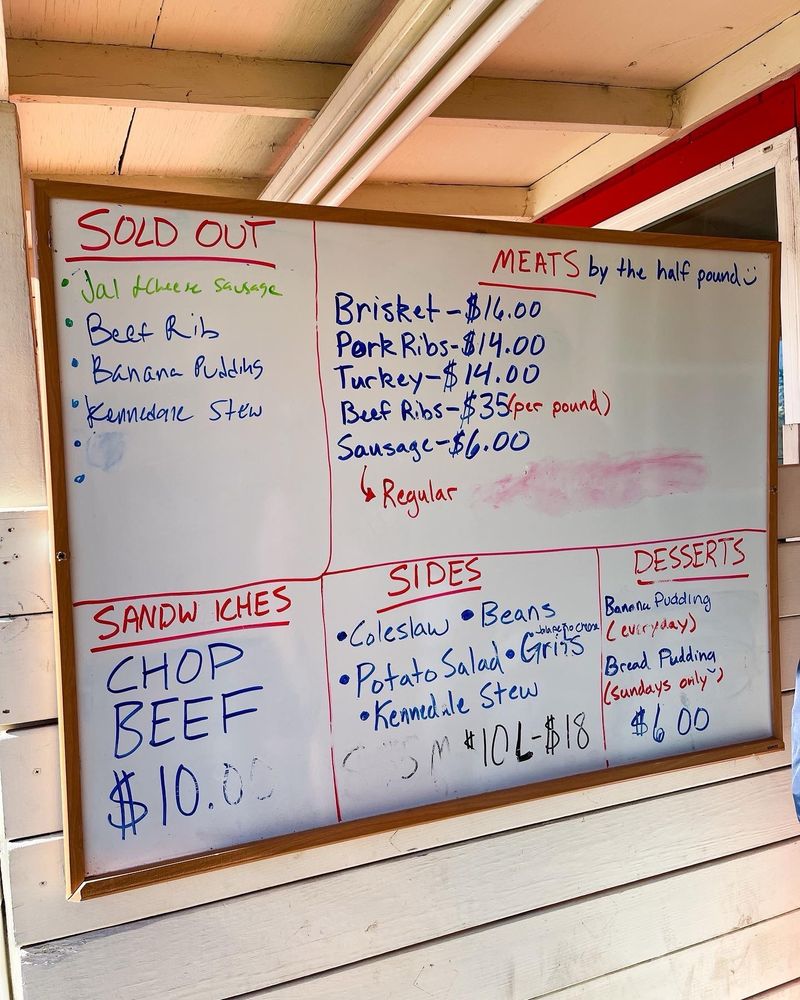 SOLD OUT
• Jal &Cheese Sausage
• Beef Rib
• Banana Pudding
• Kennedale Stew
•
•
MEATS by the half pound
Brisket-$16.00
Pork Ribs-$14.00
Turkey-$14.00
Beef Ribs-$35(per pound)
Sausage-$6.00
Regular
SANDWICHES
CHOP
BEEF
$10.00
SIDES
• Coleslaw • Beans
Jalapeño cheese
• Potato Salad • Grits
• Kennedale Stew
M $10 L-$18
DESSERTS
Banana Pudding
(everyday)
Bread Pudding
(sundays only)
$6 00